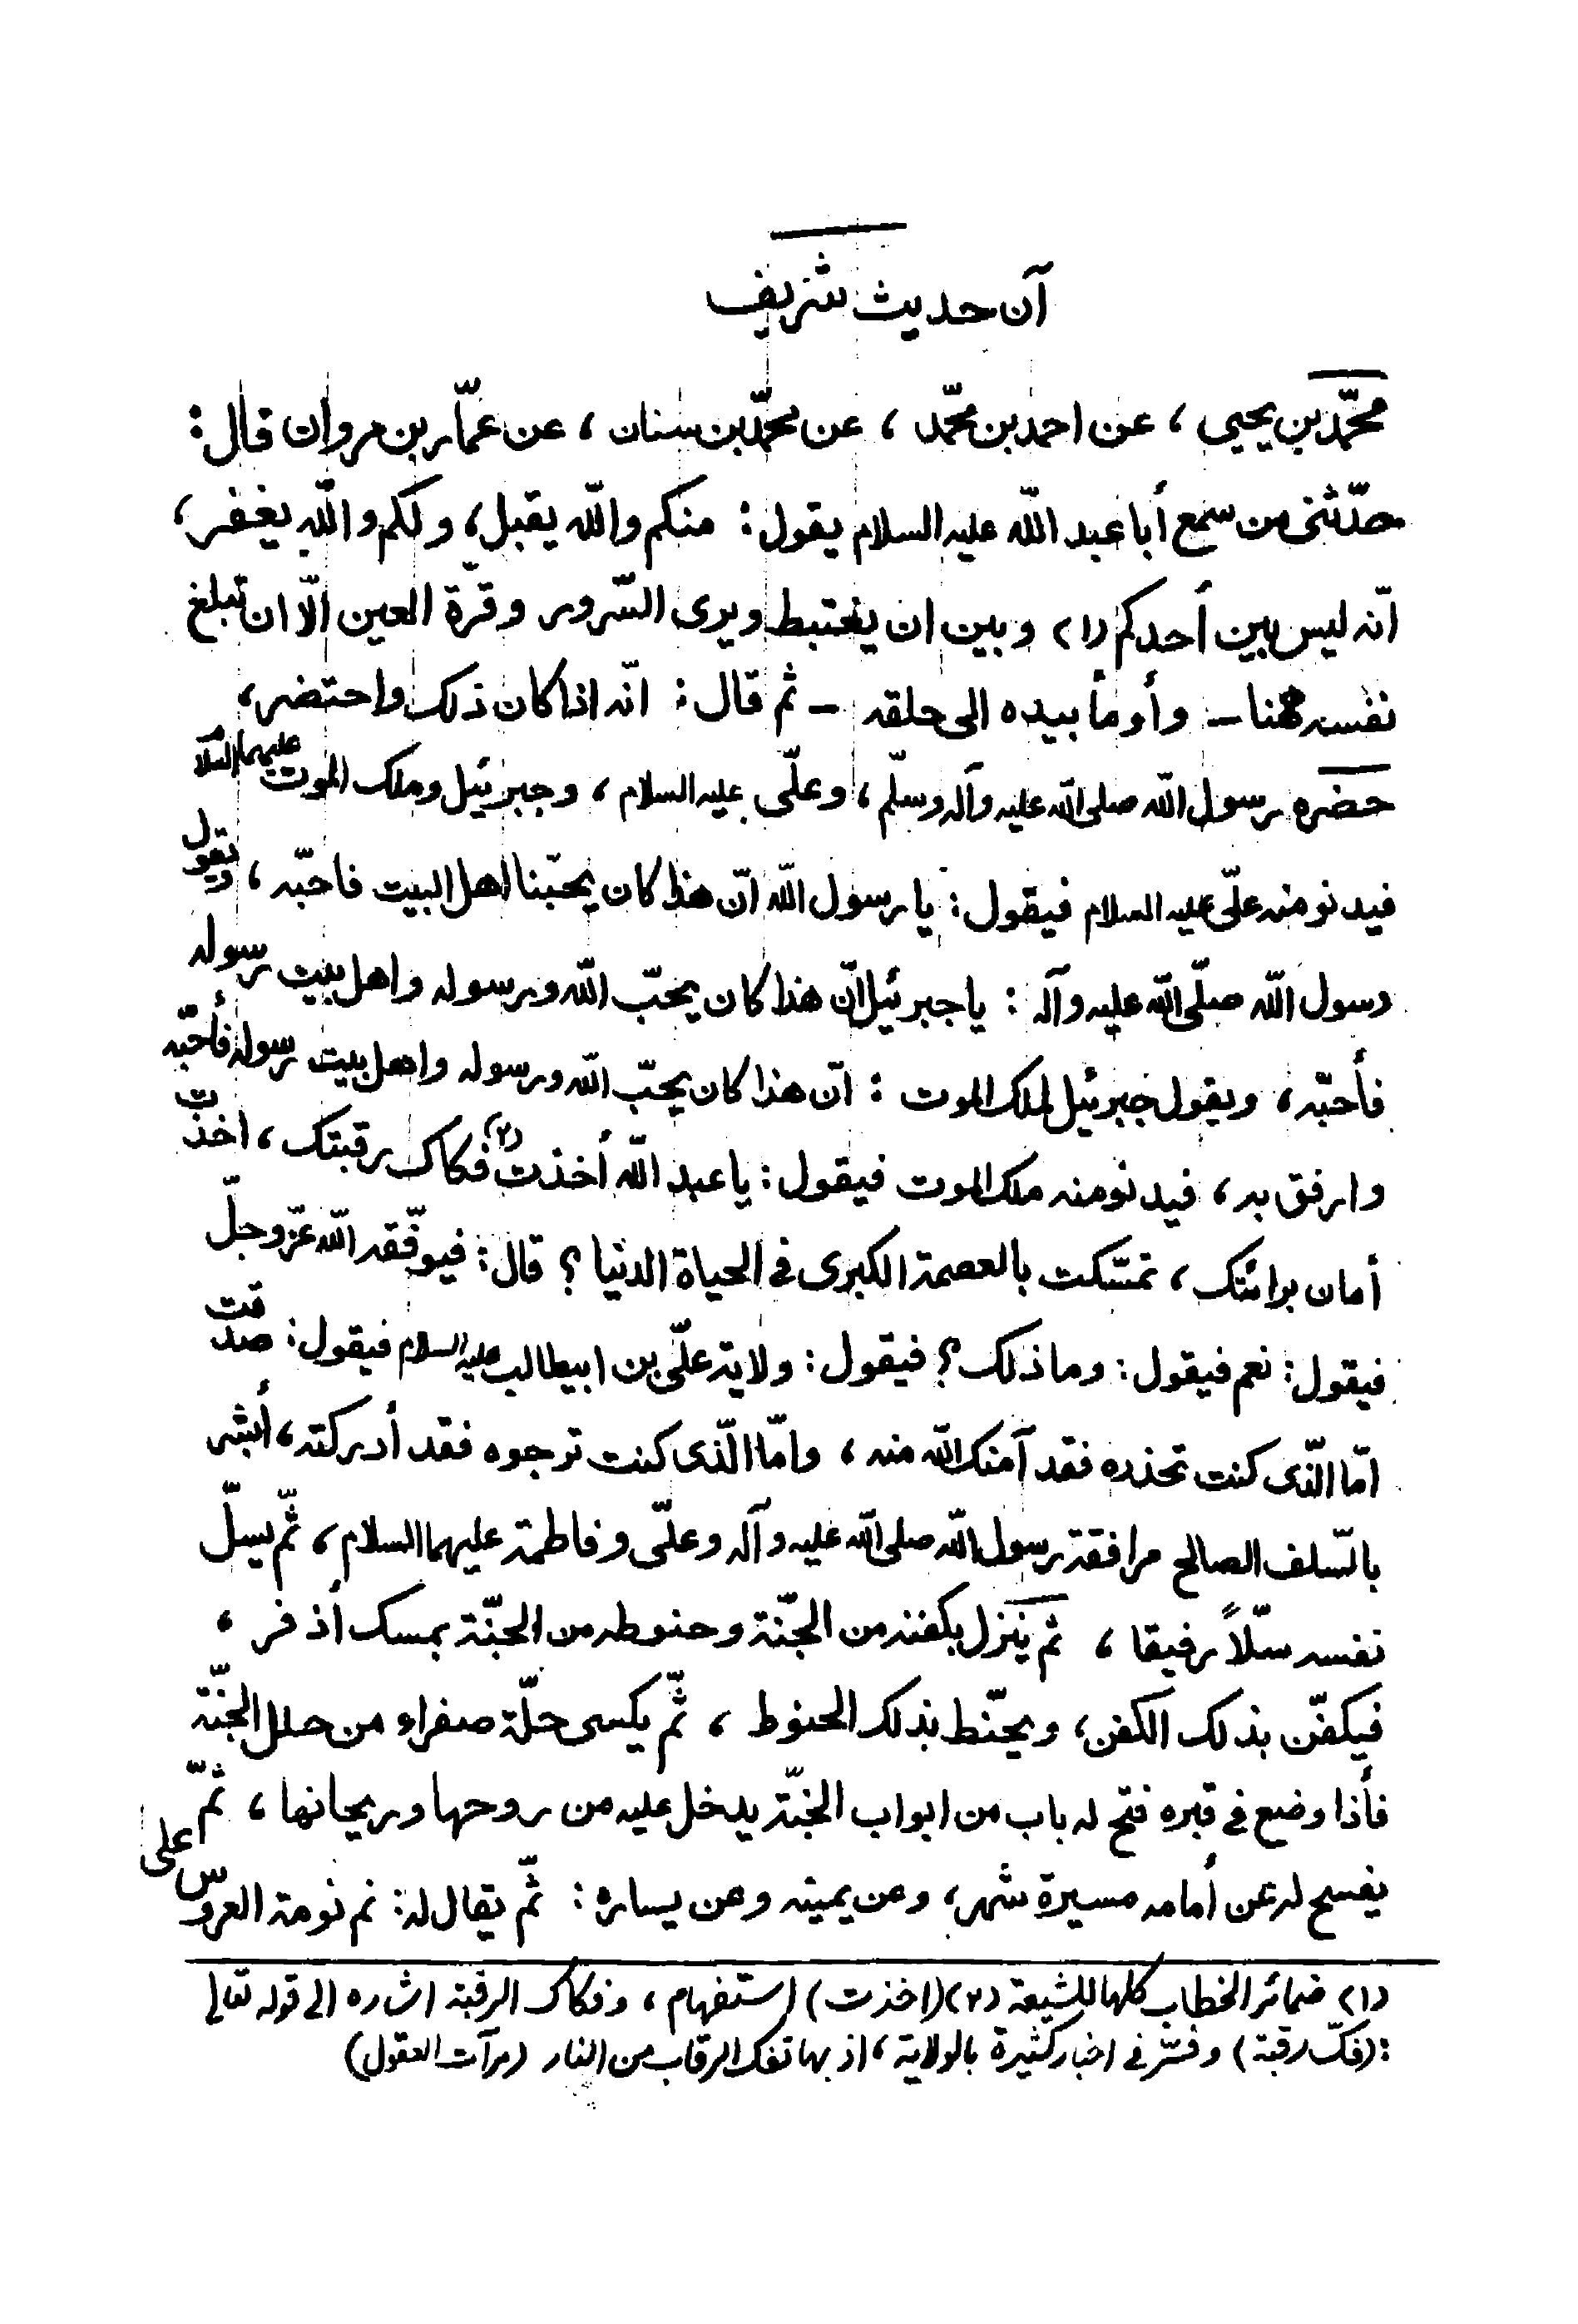 آن حدیث شریف
محمّد بن یحیی ، عن احمد بن محمّد ، عن محمّد بن سنان ، عن عمّار بن مروان قال :
حدّثنی من سمع أبا عبد اللّه علیه السلام یقول : منکم واللّه یقبل ، ولکم واللّه یغفر ،
انّه لیس بین أحدکم (١) وبین ان یغتبط ویری السّرور وقرّة العین الّا ان تبلغ
نفسه ههنا - وأومأ بیده الی حلقه - ثم قال : انّه اذا کان ذلک واحتضر ،
حضره رسول اللّه صلی اللّه علیه وآله وسلّم ، وعلّی علیه السلام ، وجبرئیل وملک الموت علیهما السلام
فیدنو منه علّی علیه السلام فیقول : یا رسول اللّه انّ هذا کان یحبّنا اهل البیت فاحبّه ، ویقول
رسول اللّه صلّی اللّه علیه وآله : یا جبرئیل انّ هذا کان یحبّ اللّه ورسوله واهل بیت رسوله
فأحبّه ، ویقول جبرئیل لملک الموت : انّ هذا کان یحبّ اللّه ورسوله واهل بیت رسوله فأحبّه
وارفق به ، فیدنو منه ملک الموت فیقول : یا عبد اللّه أخذت (٢) فکاک رقبتک ، اخذت
أمان برائتک ، تمسّکت بالعصمة الکبری فی الحیاة الدنیا ؟ قال : فیوفّقه اللّه عزّ وجلّ
فیقول : نعم فیقول : وما ذلک ؟ فیقول : ولایة علّی بن ابیطالب علیه السلام فیقول : صدقت
امّا الّذی کنت تحذره فقد آمنک اللّه منه ، وامّا الّذی کنت ترجوه فقد أدرکته ، أبشر
بالسّلف الصالح مرافقة رسول اللّه صلی اللّه علیه وآله وعلّی وفاطمة علیهما السلام ، ثّم یسلّ
نفسه سلّاً رفیقا ، ثم ینزل بکفنه من الجنّة وحنوطه من الجنّة بمسک أذفر ،
فیکفّن بذلک الکفن ، ویحنّط بذلک الحنوط ، ثّم یکسی حلّة صفراء من حلل الجنّة
فأذا وضع فی قبره فتح له باب من ابواب الجنّة یدخل علیه من روحها وریحانها ، ثمّ
یفسح له عن أمامه مسیرة شهر ، وعن یمینه وعن یساره : ثّم یقال له : نم نومة العروس علی
(١) ضمائر الخطاب کلها للشیعة (٢) (اخذت) استفهام ، وفکاک الرقبة اشاره الی قوله تعالی
: (فکّ رقبة) وفسّر فی اخبار کثیرة بالولایة ، اذ بها تفک الرقاب من النار (مرآت العقول)